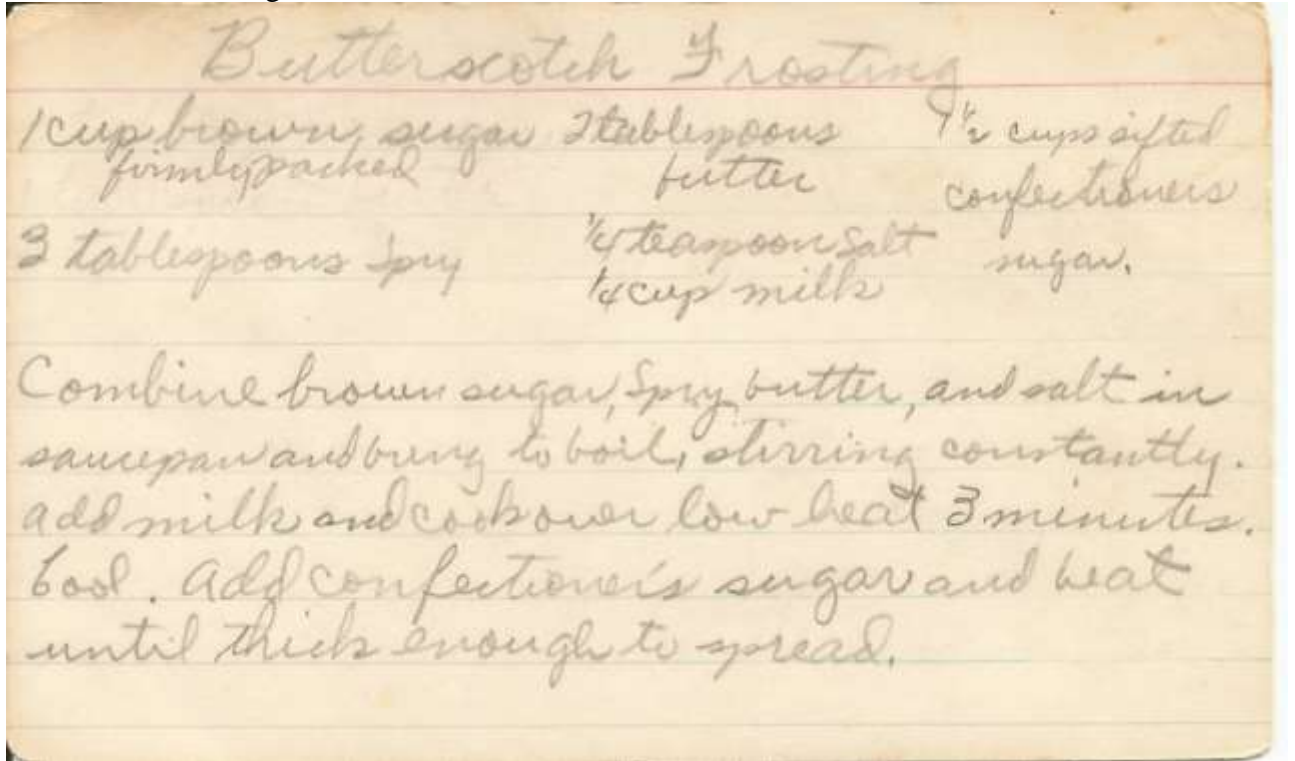 Butterscotch Frosting
1 cup brown sugar
firmly packed
3 tablespoons Spry
2 tablespoons
butter
1/4 teaspoon salt
1/4 cup milk
1 1/2 cups sifted
confectioners
sugar.
Combine brown sugar, Spry, butter, and salt in
saucepan and bring to boil, stirring constantly.
add milk and cook over low heat 3 minutes.
Cool. Add confectioner's sugar and beat
until thick enough to spread.